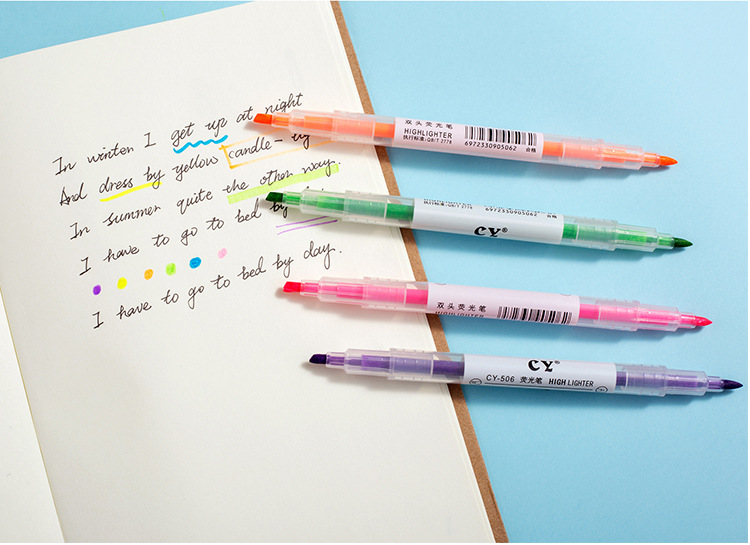 In winter I get up at night
And dress by yellow candle-
In summer quite the other way.
I have to go to bed by
I have to go to bed by day.
双头荧光笔
HIGHLIGHTER
执行标准:QB/T 2778
6972330905062
合格
6972330905062
CY®
双头荧光笔
HIGHLIGHTER
CY®
CY-506 荧光笔 HIGHLIGHTER